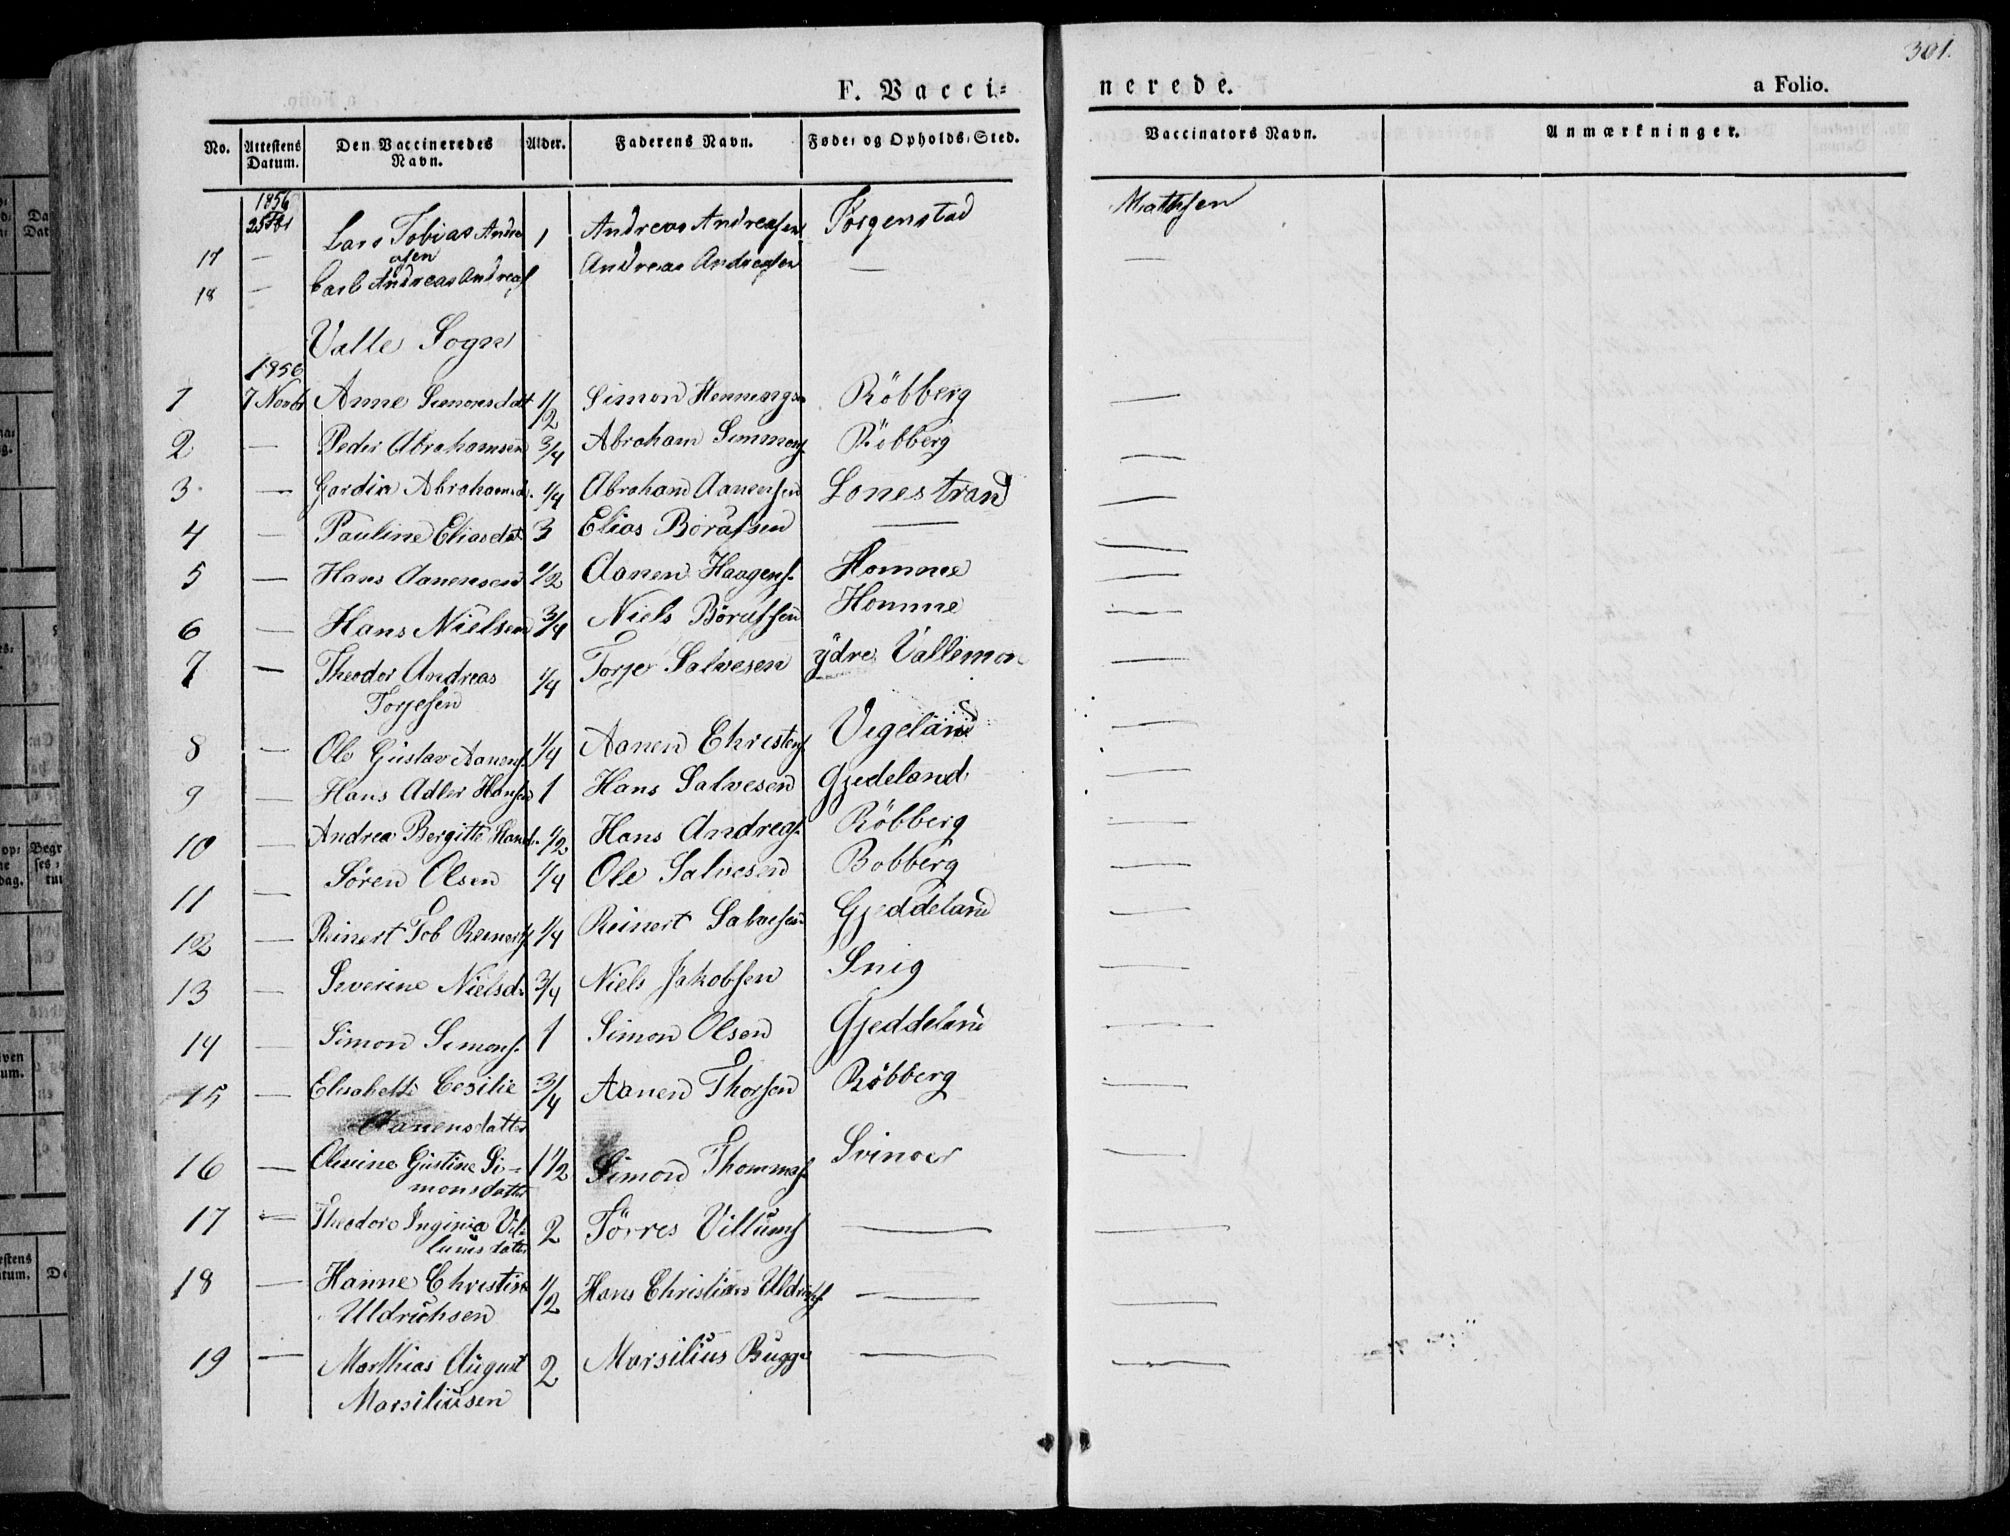 301.
F. Vacci-
nerede.
a Folio.
No. Attestens Datum. Den Vaccineredes Navn. Alder. Faderens Navn. Føde- og Opholds-Sted. Vaccinators Navn. Anmærkninger.
1856
17 — Lars Tobias Andreasen 1 Andreas Andreasen Jørgenstad Mathsen
18 — Carl Andreas Andreas 1 Andreas Andreasen — —
Valle Sogn
1856
1 7 Novbr Anne Simonsdat 1/2 Simon Hennings Röbberg —
2 — Peder Abrahamsen 3/4 Abraham Simmons Röbberg —
3 — Gordia Abrahamsd. 1/4 Abraham Aanensen Lonestrand —
4 — Pauline Eliasdat 3 Elias Börufsen — —
5 — Hans Aanensen 1/2 Aanen Haagens. Homme —
6 — Hans Nielsen 3/4 Niels Börufsen Homme —
7 — Theodor Andreas Torjesen 1/4 Torje Salvesen ydre Vallemon —
8 — Ole Gustav Aanens. 1/4 Aanen Christens Vigeland —
9 — Hans Adler Hansen 1 Hans Salvesen Gjedeland —
10 — Andrea Bergitte Hansd. 1/2 Hans Andreas. Röbberg —
11 — Sören Olsen 1/4 Ole Salvesen Bobberg —
12 — Reinert Tob Reinerts 1/4 Reinert Salvesen Gjeddeland —
13 — Severine Nielsd. 3/4 Niels Jakobsen Snig —
14 — Simon Simons. 1 Simon Olsen Gjeddeland —
15 — Elisabeth Cesilie Aanensdatter 3/4 Aanen Thorsen Röbberg —
16 — Olevine Gustine Simonsdatter 1 1/2 Simon Thommas. Svinoer —
17 — Theodore Inginia Villumsdatter 2 Törres Villums — —
18 — Hanne Christine Uldrichsen 1/2 Hans Christian Uldrichs — —
19 — Marthias August Marsiliusen 2 Marsilius Bugge — —